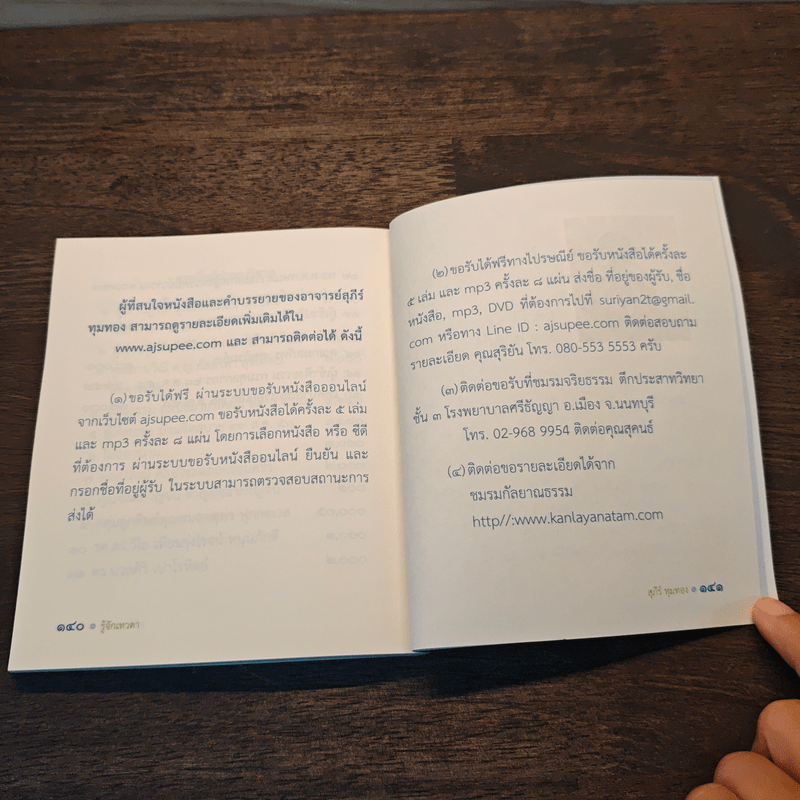 ผู้ที่สนใจหนังสือและคำบรรยายของอาจารย์สุภีร์
ทุมทอง สามารถดูรายละเอียดเพิ่มเติมได้ใน
www.ajsupee.com และ สามารถติดต่อได้ ดังนี้
(๑) ขอรับได้ฟรี ผ่านระบบขอรับหนังสือออนไลน์
จากเว็บไซต์ ajsupee.com ขอรับหนังสือได้ครั้งละ ๕ เล่ม
และ mp3 ครั้งละ ๘ แผ่น โดยการเลือกหนังสือ หรือ ซีดี
ที่ต้องการ ผ่านระบบขอรับหนังสือออนไลน์ ยืนยัน และ
กรอกชื่อที่อยู่ผู้รับ ในระบบสามารถตรวจสอบสถานะการ
ส่งได้
๑๔๐ รู้จักเทวดา
(๒) ขอรับได้ฟรีทางไปรษณีย์ ขอรับหนังสือได้ครั้งละ
๕ เล่ม และ mp3 ครั้งละ ๘ แผ่น ส่งชื่อ ที่อยู่ของผู้รับ, ชื่อ
หนังสือ, mp3, DVD ที่ต้องการไปที่ suriyan2t@gmail.
com หรือทาง Line ID : ajsupee.com ติดต่อสอบถาม
รายละเอียด คุณสุริยัน โทร. 080-553 5553 ครับ
(๓) ติดต่อขอรับที่ชมรมจริยธรรม ตึกประสาทวิทยา
ชั้น ๓ โรงพยาบาลศรีธัญญา อ.เมือง จ.นนทบุรี
โทร. 02-968 9954 ติดต่อคุณสุคนธ์
(๔) ติดต่อขอรายละเอียดได้จาก
ชมรมกัลยาณธรรม
http//:www.kanlayanatam.com
สุภีร์ ทุมทอง ๑๔๑